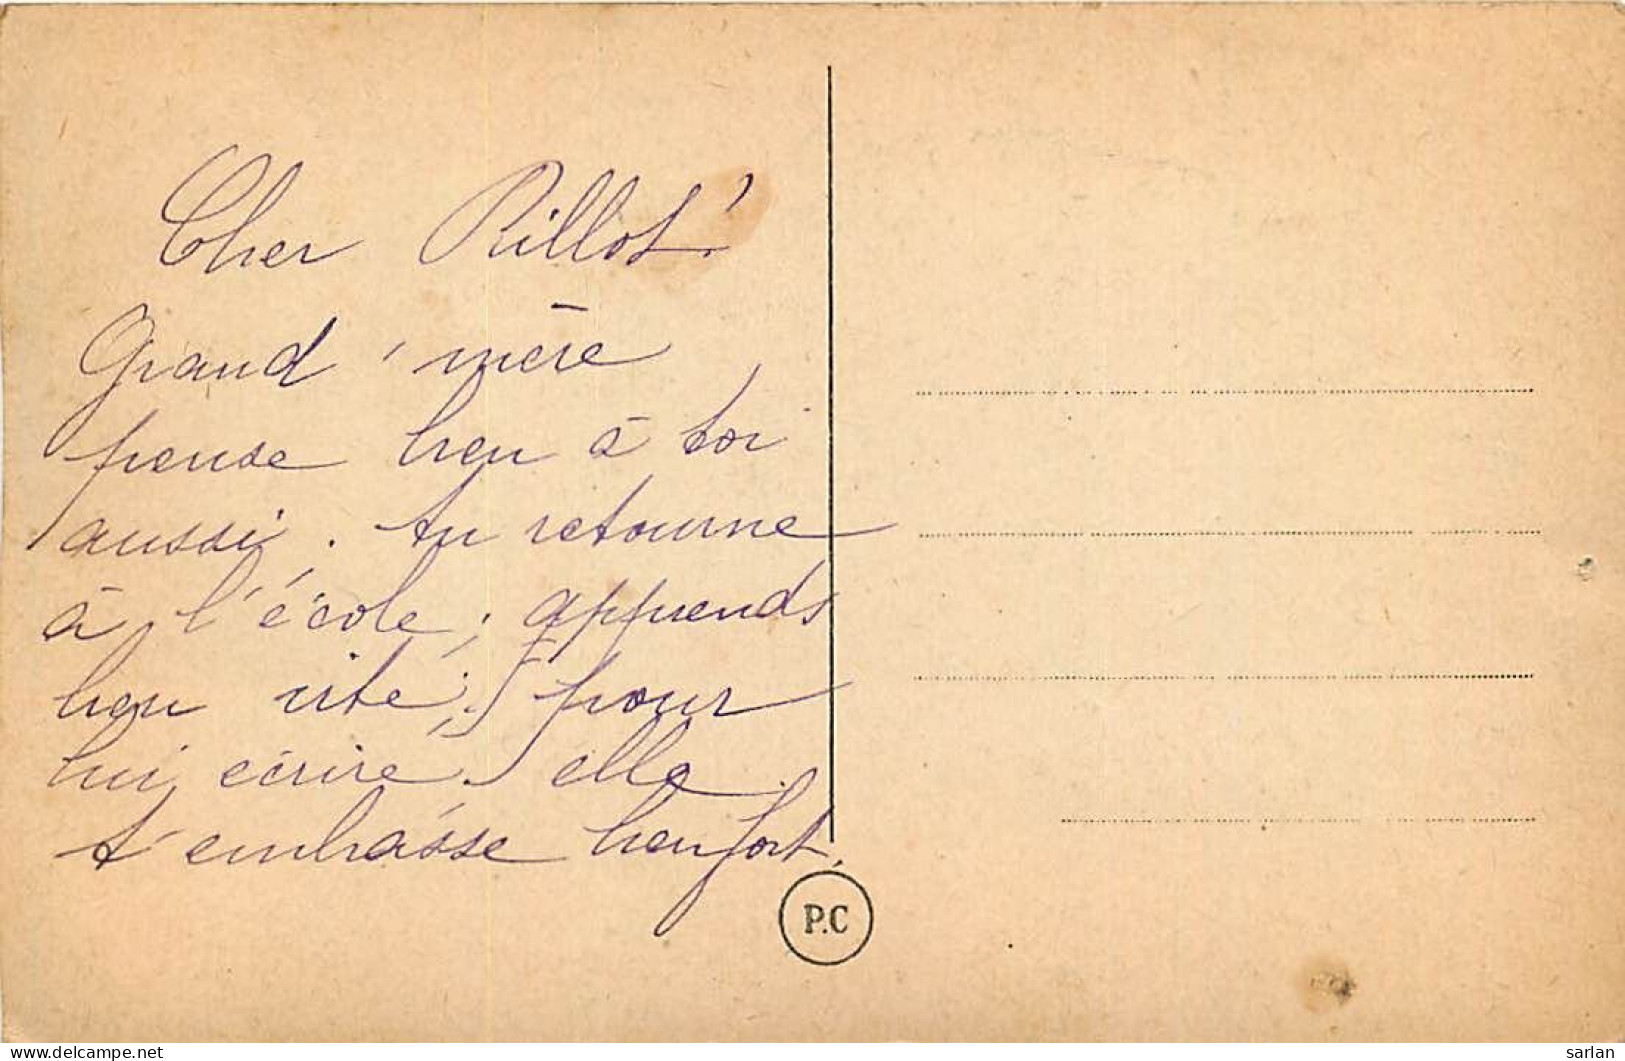 Cher Rillot!
Grand'mère
pense bien à toi
aussi. tu retourne
à l'école; apprends
bien vite; pour
lui écrire. elle
t'embrasse bien fort.
P.C
sarlan